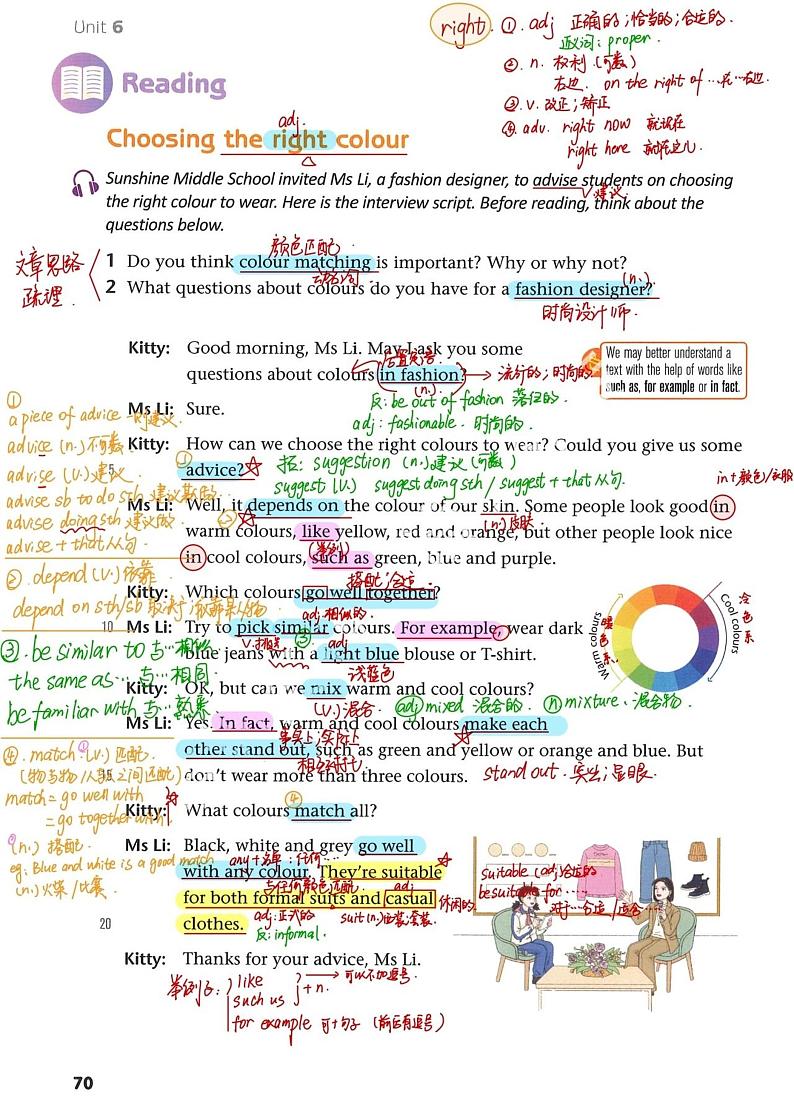 Unit 6
right
① adj 正确的；恰当的；合适的．
近义词：proper．
② n. 权利（可数）
右边．on the right of …在…右边．
③ v. 改正；矫正
④ adv. right now 就现在
right here 就在这儿．
Reading
adj.
Choosing the right colour
Sunshine Middle School invited Ms Li, a fashion designer, to advise students on choosing
v. 建议
the right colour to wear. Here is the interview script. Before reading, think about the
questions below.
文章思路
疏理．
颜色匹配
1 Do you think colour matching is important? Why or why not?
动名词
(n.)
2 What questions about colours do you have for a fashion designer?
时尚设计师．
Kitty: Good morning, Ms Li. May I ask you some
questions about colours in fashion?
流行的；时尚的
(n.)
反：be out of fashion 落伍的
adj：fashionable. 时尚的．
We may better understand a
text with the help of words like
such as, for example or in fact.
Ms Li: Sure.
Kitty: How can we choose the right colours to wear? Could you give us some
5
① advice?
拓：suggestion (n.)建议（可数）
suggest (v.) suggest doing sth / suggest + that从句．
in+颜色/衣服
Ms Li: Well, it depends on the colour of our skin. Some people look good in
②
(n.)皮肤
warm colours, like yellow, red and orange, but other people look nice
in cool colours, such as green, blue and purple.
Kitty: Which colours go well together?
adj.相似的
10
Ms Li: Try to pick similar colours. For example, wear dark
v.挑选
③
adj
blue jeans with a light blue blouse or T-shirt.
浅蓝色
Warm colours
暖色系
Cool colours
冷色系
Kitty: OK, but can we mix warm and cool colours?
(v.)混合
adj mixed 混合的．
n mixture．混合物．
Ms Li: Yes. In fact, warm and cool colours make each
事实上；实际上
other stand out, such as green and yellow or orange and blue. But
stand out．突出；显眼．
don't wear more than three colours.
④
Kitty: What colours match all?
Ms Li: Black, white and grey go well
with any colour. They're suitable
与任何颜色匹配．
adj
for both formal suits and casual
休闲的
adj：正式的
suit (n.)
20
clothes.
反：informal.
suitable (adj)合适的
be suitable for …
Kitty: Thanks for your advice, Ms Li.
like
such us
+ n.
可以不加逗号
for example 可+句子（前后有逗号）
①
a piece of advice 一则建议．
advice (n.)不可数
advise (v.)建议
advise sb to do sth 建议某做…
advise doing sth 建议做…
advise + that从句．
② depend (v.)依靠
③ be similar to 与…相似
the same as … 与…相同
be familiar with 与…熟悉
④ match：(v.) 匹配．
match = go well with
= go together with
(n.) 搭配．
eg: Blue and white is a good match
(n.)火柴/比赛．
70